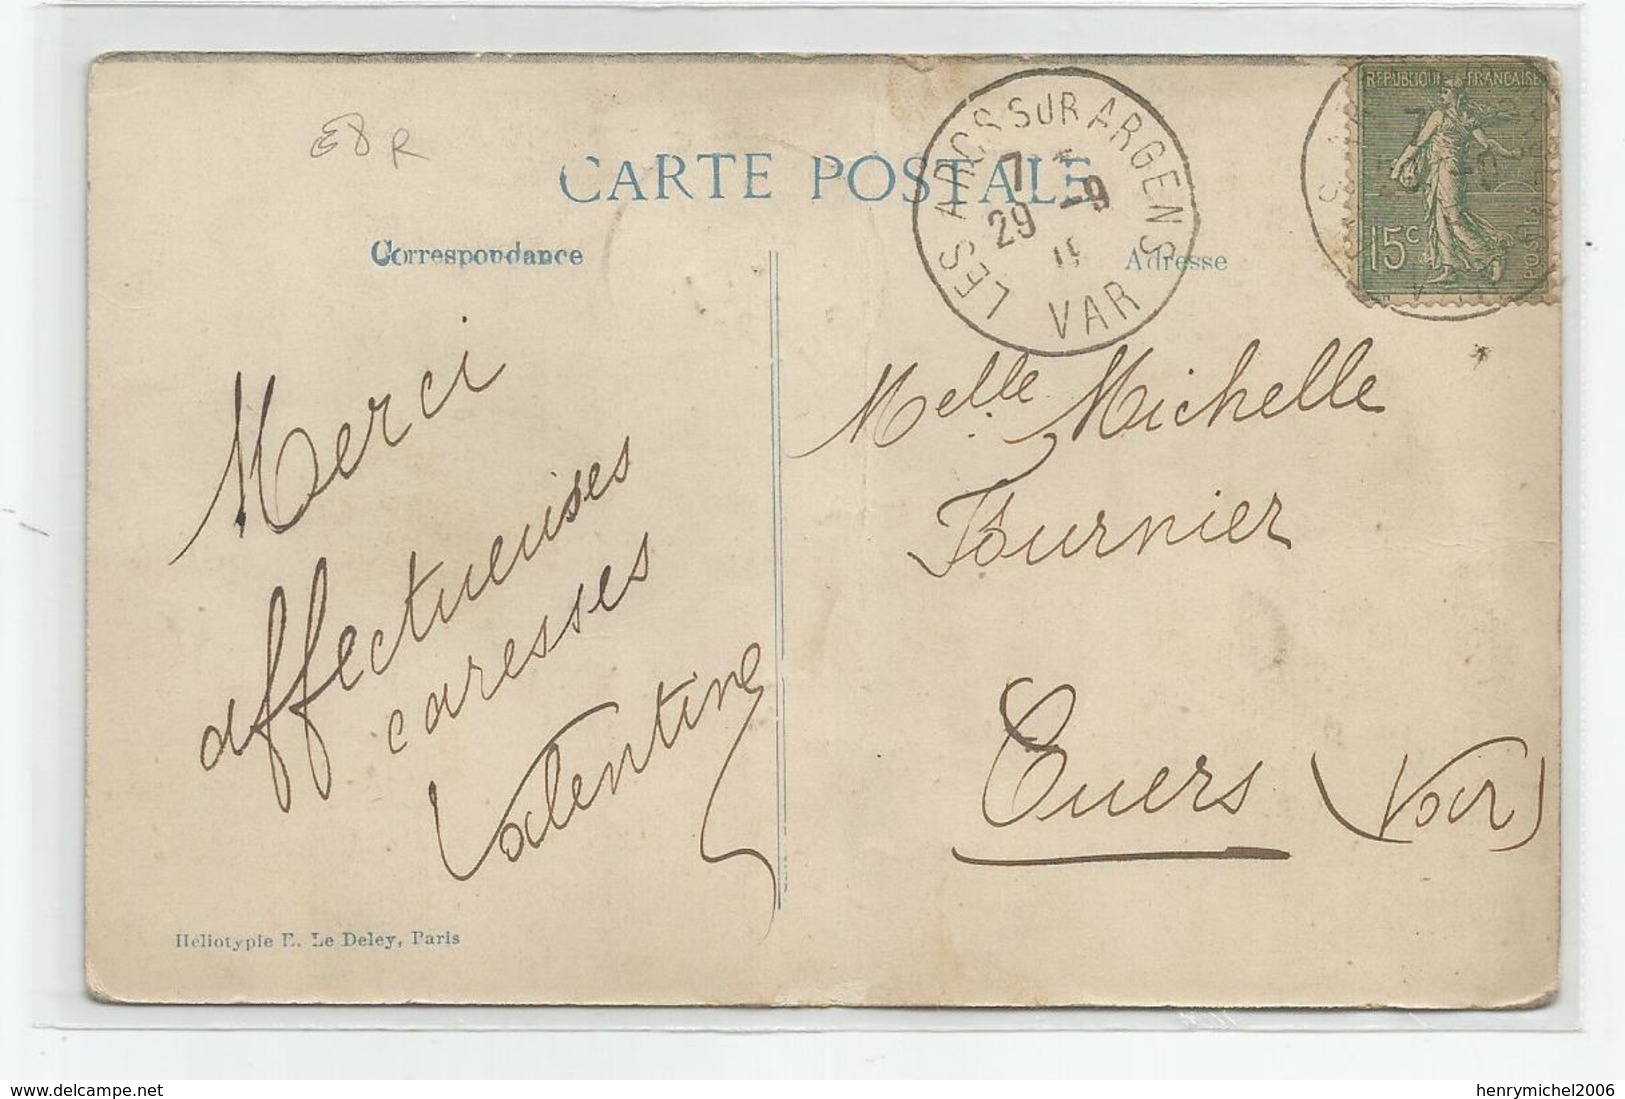 E8R
CARTE POSTALE
Correspondance
Adresse
LES ARCS SUR ARGENS
7
29 - 9
VAR
REPUBLIQUE FRANÇAISE
15c
POSTES
Merci
affectueuses
caresses
Valentine
Melle Michelle
Fournier
Cuers (Var)
Héliotypie E. Le Deley, Paris
www.delcampe.net
henrymichel2006